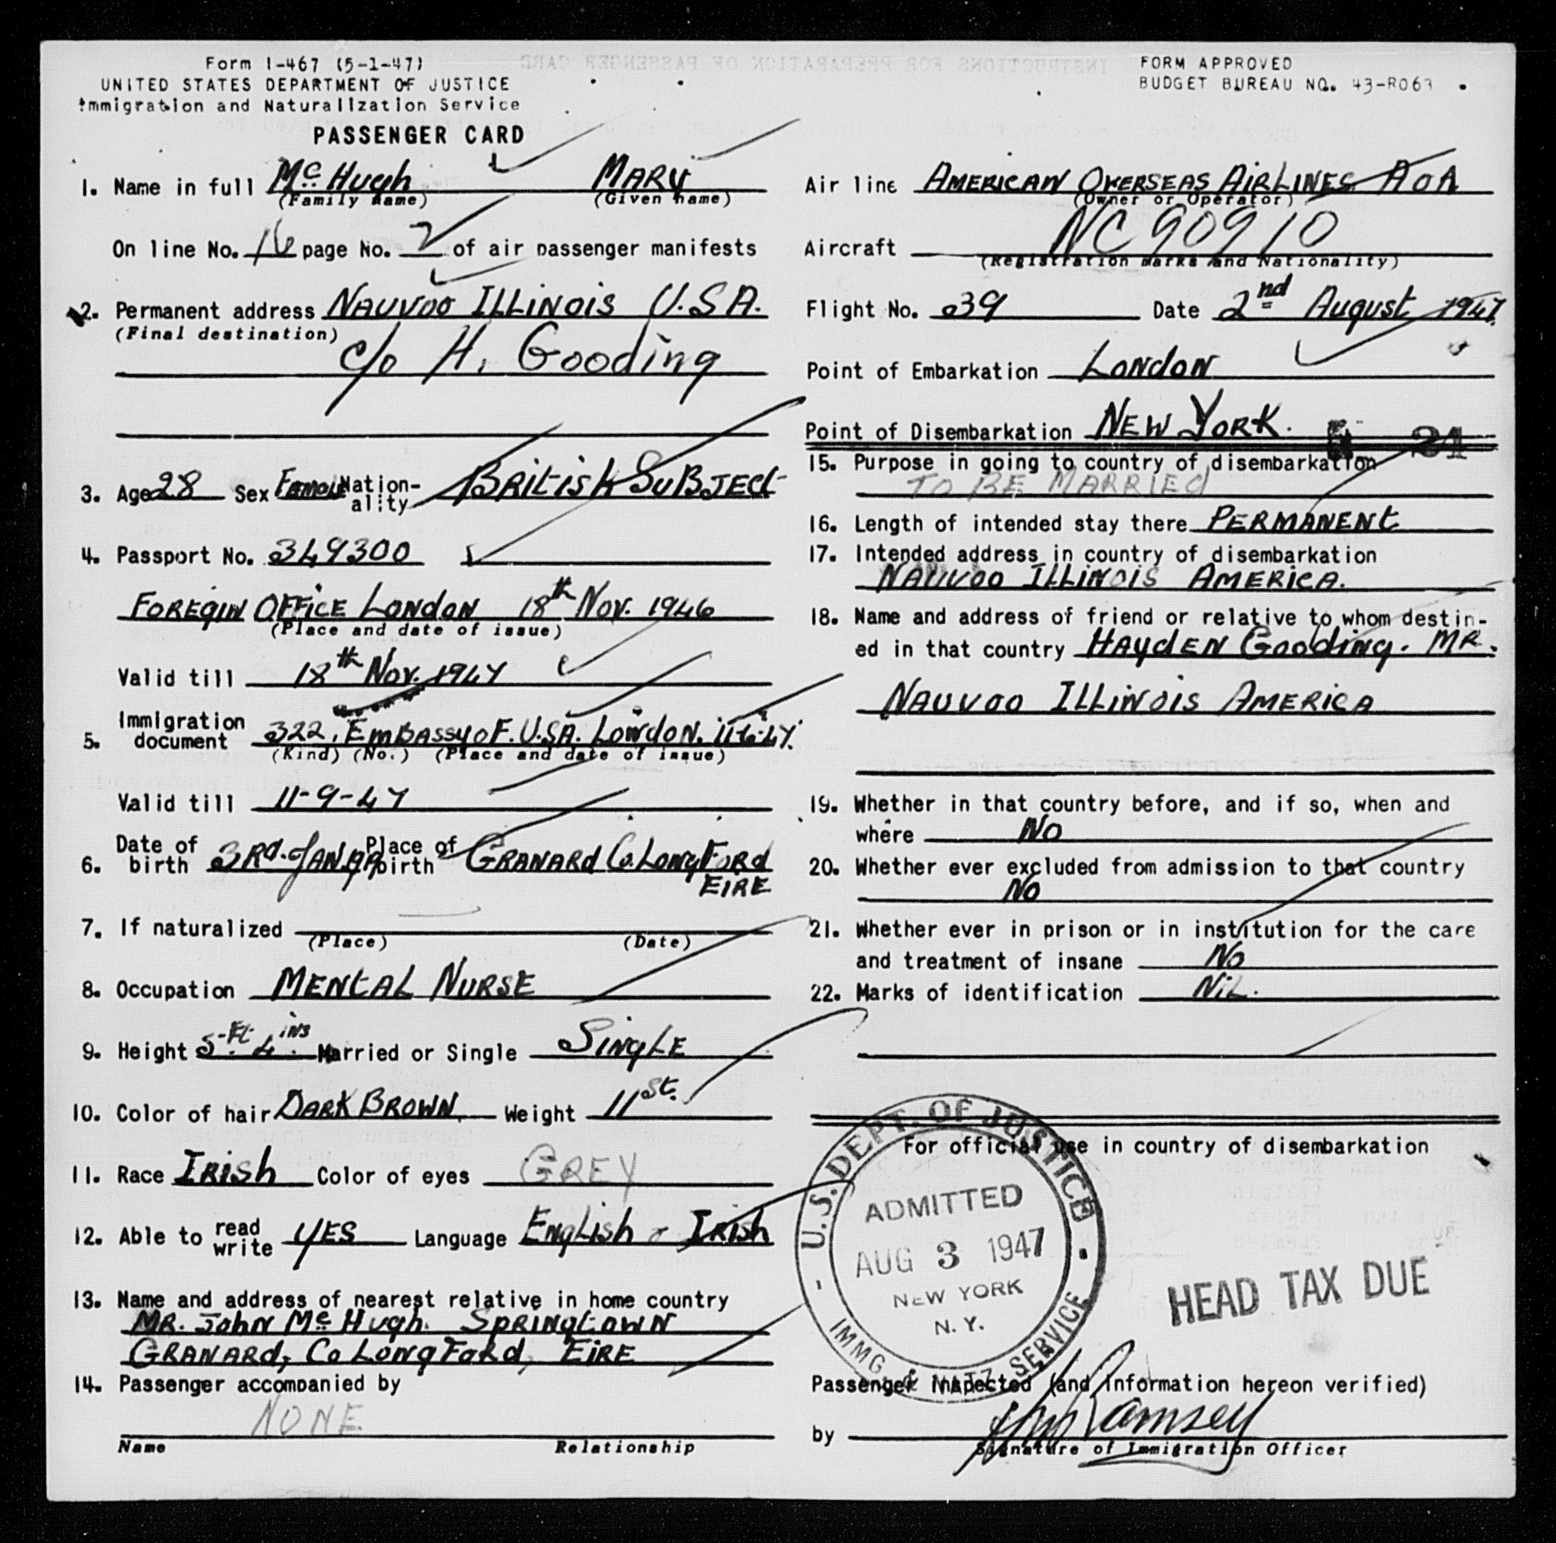 Form I-467 (5-1-47)
UNITED STATES DEPARTMENT OF JUSTICE
Immigration and Naturalization Service
PASSENGER CARD
FORM APPROVED
BUDGET BUREAU NO. 43-R063
1. Name in full McHugh MARY
(Family name) (Given name)
On line No. 16 page No. 2 of air passenger manifests
2. Permanent address NAUVOO ILLINOIS U.S.A.
(Final destination)
c/o H. Gooding
3. Age 28 Sex FEMALE Nationality BRITISH SUBJECT
4. Passport No. 349300
FOREGIN OFFICE LONDON 18th Nov. 1946
(Place and date of issue)
Valid till 18th Nov. 1947
5. Immigration document 322, EMBASSY OF U.S.A. LONDON.
(Kind) (No.) (Place and date of issue)
Valid till 11-9-47
6. Date of birth 3RD. JAN. Place of birth GRANARD Co. LONGFORD
EIRE
7. If naturalized
(Place) (Date)
8. Occupation MENTAL NURSE
9. Height 5-Ft 4 ins Married or Single SINGLE
10. Color of hair DARK BROWN. Weight 11 St.
11. Race IRISH Color of eyes GREY
12. Able to read write YES Language ENGLISH & IRISH
13. Name and address of nearest relative in home country
MR. JOHN McHUGH. SPRINGTOWN
GRANARD, Co LONGFORD, EIRE
14. Passenger accompanied by
NONE
Name Relationship
Air line AMERICAN OVERSEAS AIRLINES AOA
(Owner or Operator)
Aircraft NC 90910
(Registration marks and Nationality)
Flight No. 039 Date 2nd August 1947.
Point of Embarkation LONDON
Point of Disembarkation NEW YORK. 24
15. Purpose in going to country of disembarkation
TO BE MARRIED
16. Length of intended stay there PERMANENT
17. Intended address in country of disembarkation
NAUVOO ILLINOIS AMERICA.
18. Name and address of friend or relative to whom destin-
ed in that country HAYDEN Gooding. MR.
NAUVOO ILLINOIS AMERICA
19. Whether in that country before, and if so, when and
where No
20. Whether ever excluded from admission to that country
No
21. Whether ever in prison or in institution for the care
and treatment of insane No
22. Marks of identification NIL.
For official use in country of disembarkation
U.S. DEPT. OF JUSTICE
ADMITTED
AUG 3 1947
NEW YORK
N.Y.
IMMG. & NATZ. SERVICE
HEAD TAX DUE
Passenger inspected (and information hereon verified)
by Ramsey
Signature of Immigration Officer